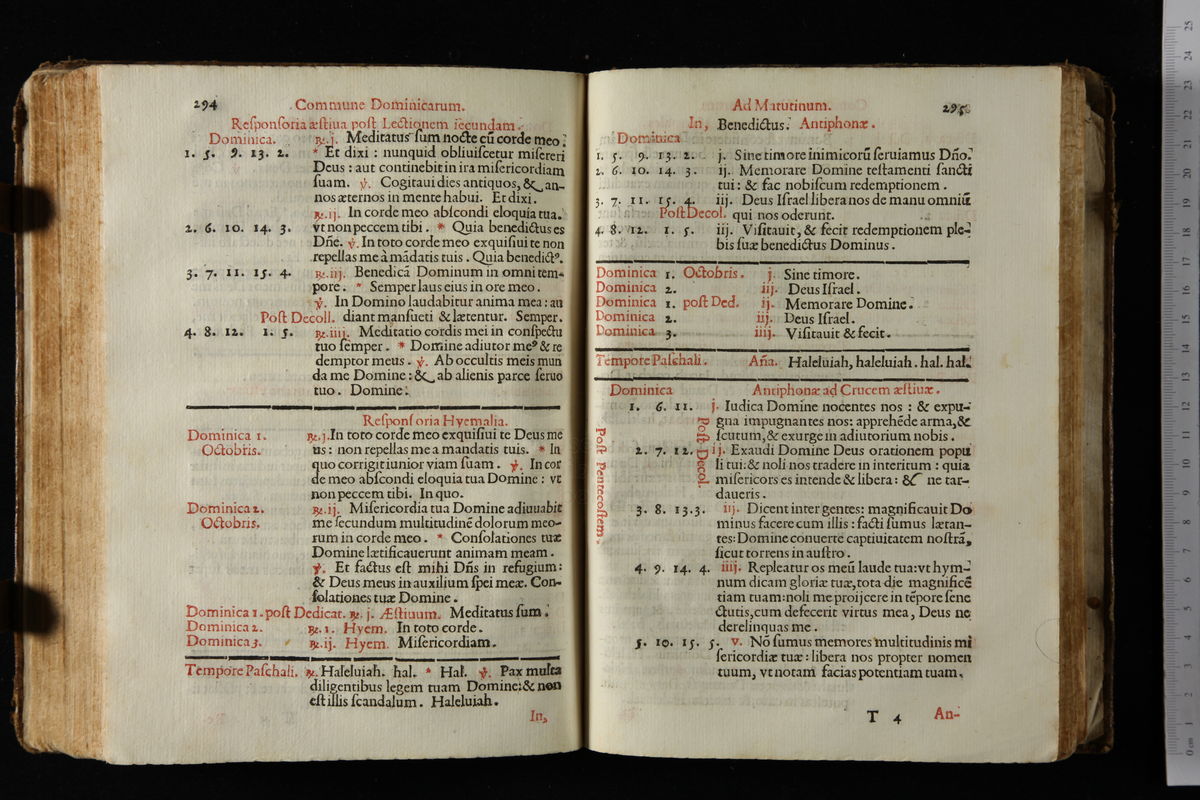 294 Commune Dominicarum.
Reſponſoria æſtiua poſt Lectionem ſecundam.
Dominica. ℟.j. Meditatus ſum nocte cū corde meo:
1. 5. 9. 13. 2. * Et dixi : nunquid obliuiſcetur miſereri
Deus : aut continebit in ira miſericordiam
ſuam. ℣. Cogitaui dies antiquos, & an-
nos æternos in mente habui. Et dixi.
℟.ij. In corde meo abſcondi eloquia tua.
2. 6. 10. 14. 3. vt non peccem tibi. * Quia benedictus es
Dñe. ℣. In toto corde meo exquiſiui te non
repellas me à mādatis tuis. Quia benedictꝰ.
3. 7. 11. 15. 4. ℟.iij. Benedicā Dominum in omni tem-
pore. * Semper laus eius in ore meo.
℣. In Domino laudabitur anima mea : au
Poſt Decoll. diant manſueti & lætentur. Semper.
4. 8. 12. 1. 5. ℟.iiij. Meditatio cordis mei in conſpectu
tuo ſemper. * Domine adiutor meꝰ & re
demptor meus. ℣. Ab occultis meis mun
da me Domine : & ab alienis parce ſeruo
tuo. Domine:
Reſponſoria Hyemalia.
Dominica 1. ℟.j. In toto corde meo exquiſiui te Deus me
Octobris. us : non repellas me a mandatis tuis. * In
quo corrigit iunior viam ſuam. ℣. In cor
de meo abſcondi eloquia tua Domine : vt
non peccem tibi. In quo.
Dominica 2. ℟.ij. Miſericordia tua Domine adiuuabit
Octobris. me ſecundum multitudinē dolorum meo-
rum in corde meo. * Conſolationes tuæ
Domine lætificauerunt animam meam.
℣. Et factus eſt mihi Dñs in refugium:
& Deus meus in auxilium ſpei meæ. Con-
ſolationes tuæ Domine.
Dominica 1. poſt Dedicat. ℟. j. Æſtiuum. Meditatus ſum.
Dominica 2. ℟.1. Hyem. In toto corde.
Dominica 3. ℟.ij. Hyem. Miſericordiam.
Tempore Paſchali. ℟. Haleluiah. hal. * Hal. ℣. Pax multa
diligentibus legem tuam Domine: & non
eſt illis ſcandalum. Haleluiah.
In,
Ad Matutinum. 295
In, Benedictus. Antiphonæ.
Dominica
1. 5. 9. 13. 2. j. Sine timore inimicorū ſeruiamus Dño.
2. 6. 10. 14. 3. ij. Memorare Domine teſtamenti ſancti
tui : & fac nobiſcum redemptionem.
3. 7. 11. 15. 4. iij. Deus Iſrael libera nos de manu omniū
Poſt Decol. qui nos oderunt.
4. 8. 12. 1. 5. iij. Viſitauit, & fecit redemptionem ple-
bis ſuæ benedictus Dominus.
Dominica 1. Octobris. j. Sine timore.
Dominica 2. iij. Deus Iſrael.
Dominica 1. poſt Ded. ij. Memorare Domine.
Dominica 2. iij. Deus Iſrael.
Dominica 3. iiij. Viſitauit & fecit.
Tempore Paſchali. Aña. Haleluiah, haleluiah. hal. hal.
Dominica Antiphonæ ad Crucem æſtiuæ.
Poſt Pentecoſtem.
Poſt Decol.
1. 6. 11. j. Iudica Domine nocentes nos : & expu-
gna impugnantes nos: apprehēde arma, &
ſcutum, & exurge in adiutorium nobis.
2. 7. 12. ij. Exaudi Domine Deus orationem popu
li tui: & noli nos tradere in interitum : quia
miſericors es intende & libera : & ne tar-
daueris.
3. 8. 13. 3. iij. Dicent inter gentes: magnificauit Do
minus facere cum illis : facti ſumus lætan-
tes: Domine conuerte captiuitatem noſtrā,
ſicut torrens in auſtro.
4. 9. 14. 4. iiij. Repleatur os meū laude tua: vt hym-
num dicam gloriæ tuæ, tota die magnificē
tiam tuam: noli me proijcere in tēpore ſene
ctutis, cum defecerit virtus mea, Deus ne
derelinquas me.
5. 10. 15. 5. v. Nō ſumus memores multitudinis mi
ſericordiæ tuæ : libera nos propter nomen
tuum, vt notam facias potentiam tuam.
T 4 An-